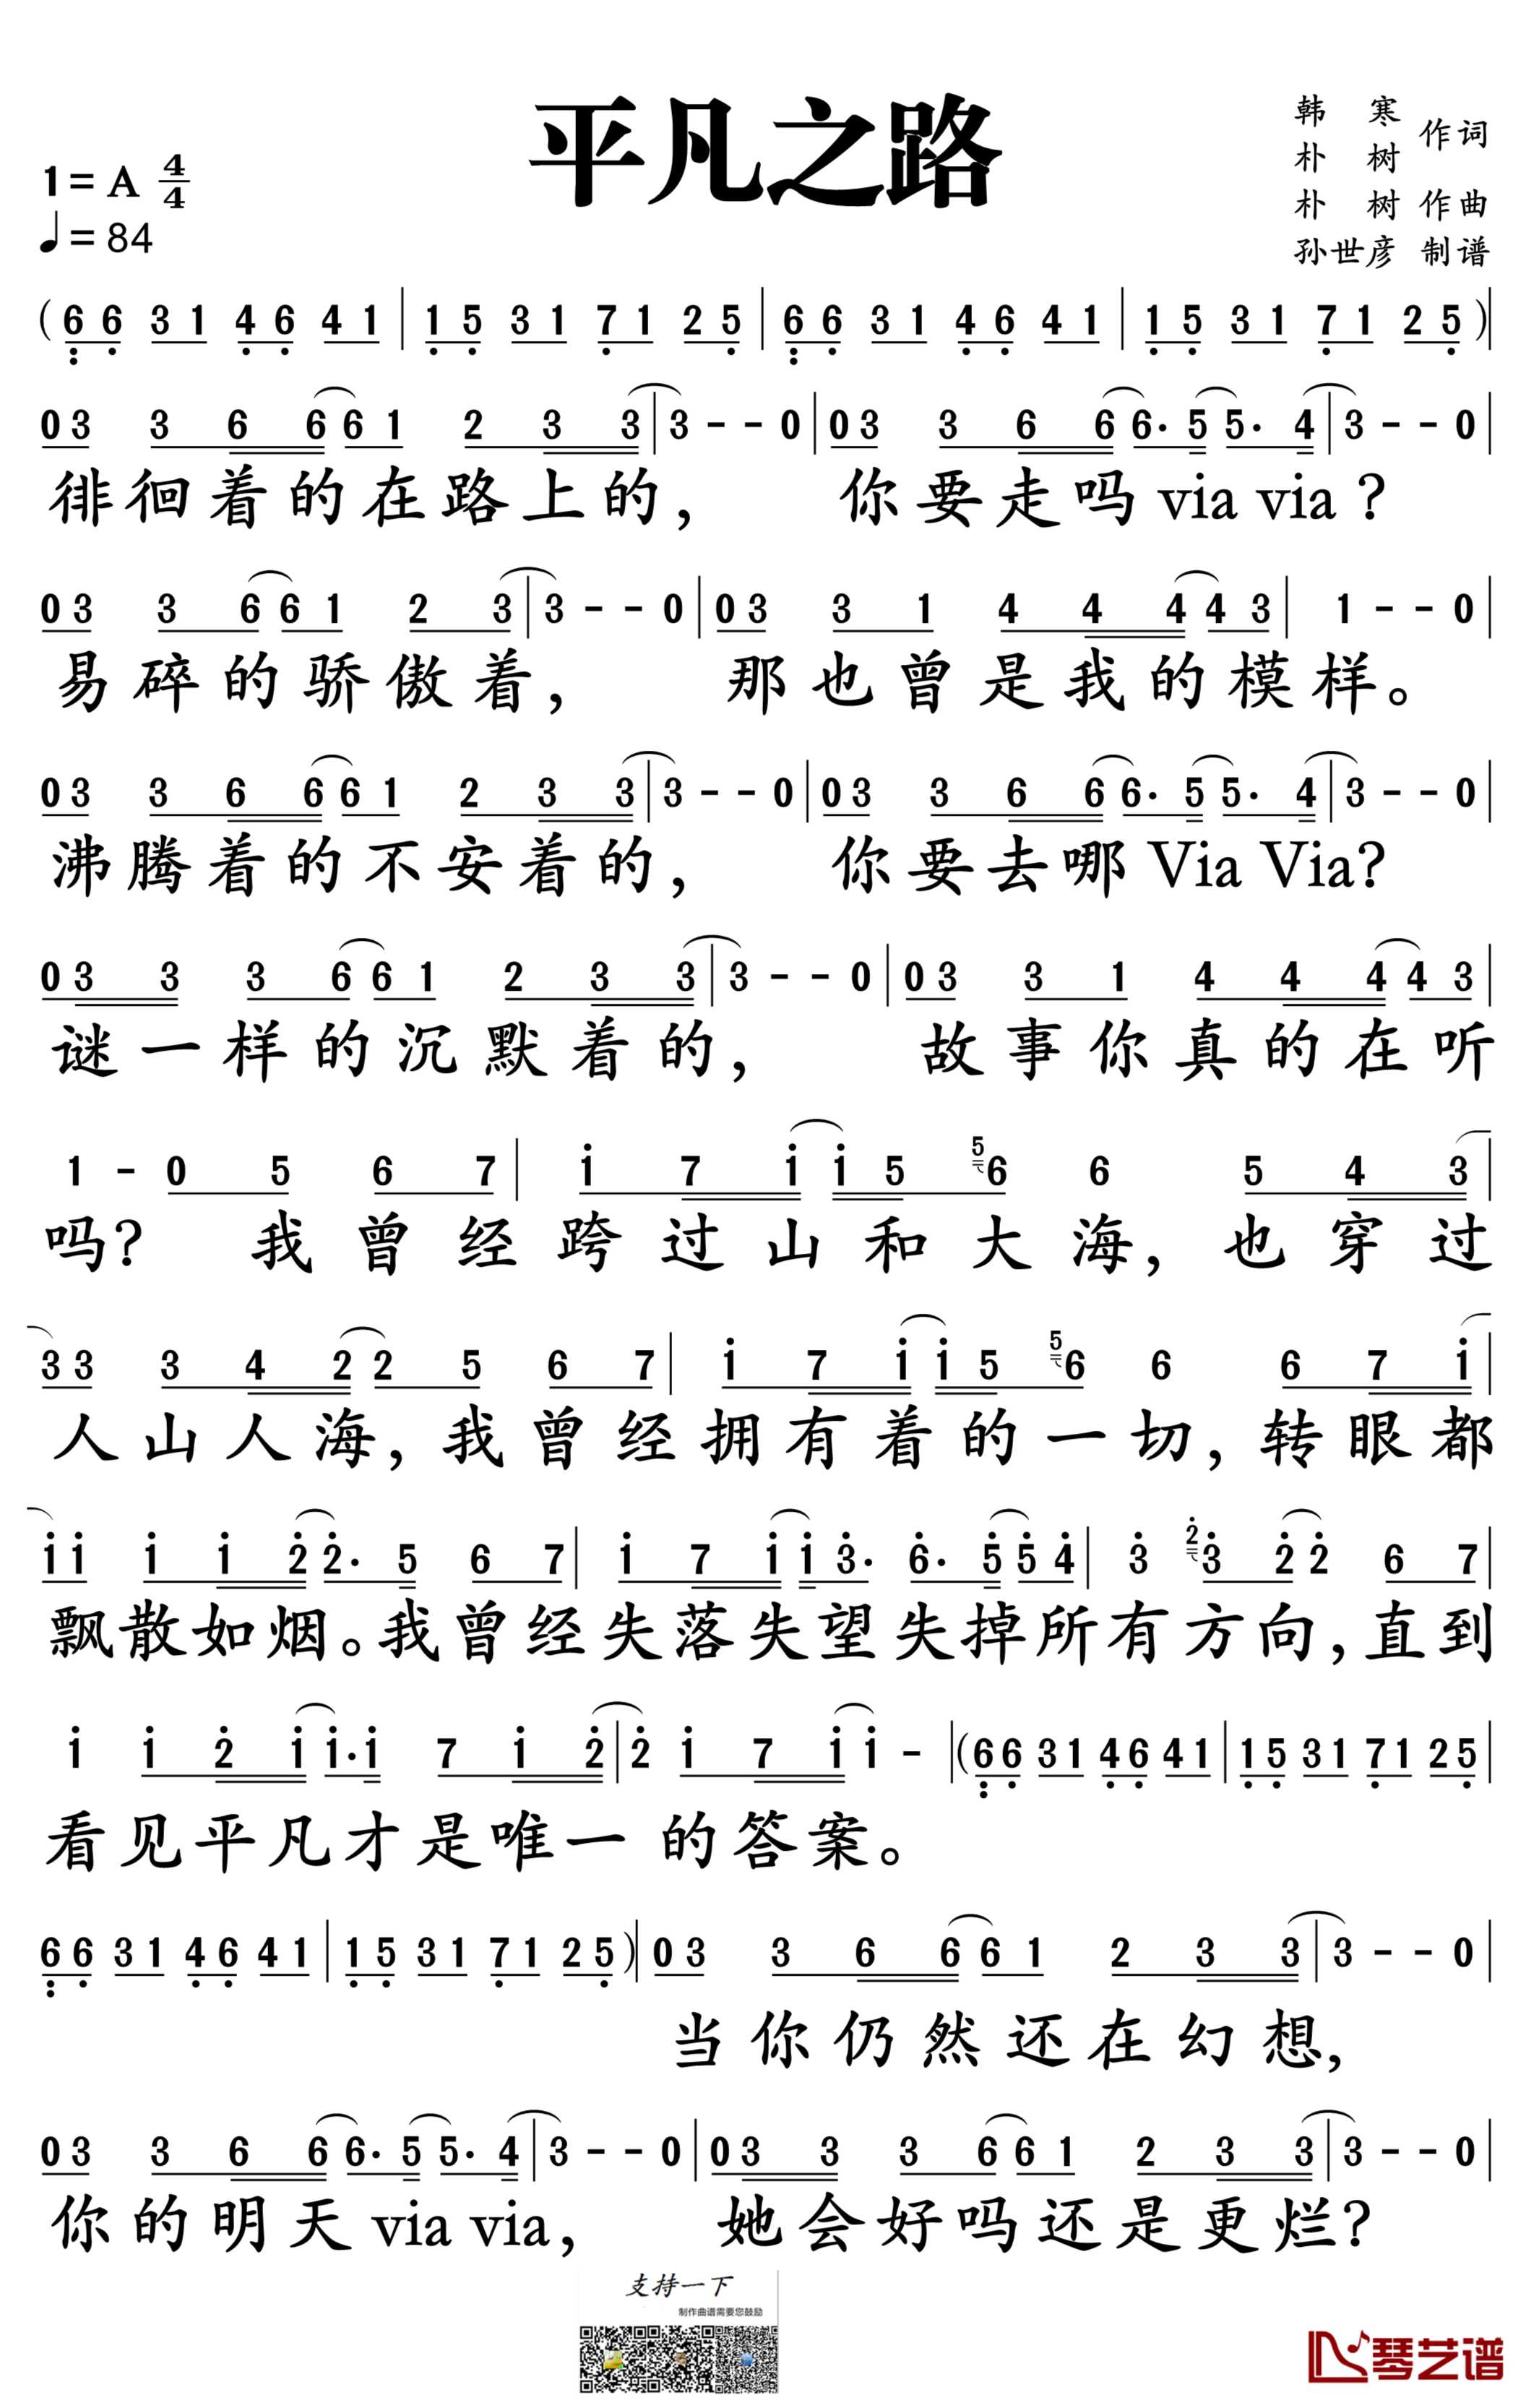 平凡之路
韩 寒 作词
朴 树
朴 树 作曲
孙世彦 制谱
1=A 4/4
♩=84
(6 6 3 1 4 6 4 1 | 1 5 3 1 7 1 2 5 | 6 6 3 1 4 6 4 1 | 1 5 3 1 7 1 2 5 )|
0 3 3 6 6 6 1 2 3 3 | 3 - - 0 | 0 3 3 6 6 6· 5 5· 4 | 3 - - 0 |
徘徊着的在路上的, 你要走吗 via via ?
0 3 3 6 6 1 2 3 | 3 - - 0 | 0 3 3 1 4 4 4 4 3 | 1 - - 0 |
易碎的骄傲着, 那也曾是我的模样。
0 3 3 6 6 6 1 2 3 3 | 3 - - 0 | 0 3 3 6 6 6· 5 5· 4 | 3 - - 0 |
沸腾着的不安着的, 你要去哪 Via Via?
0 3 3 3 6 6 1 2 3 3 | 3 - - 0 | 0 3 3 1 4 4 4 4 3 |
谜一样的沉默着的, 故事你真的在听
1 - 0 5 6 7 | i 7 i i 5 5 6 6 5 4 3 |
吗? 我曾经跨过山和大海, 也穿过
3 3 3 4 2 2 5 6 7 | i 7 i i 5 5 6 6 6 7 i |
人山人海, 我曾经拥有着的一切, 转眼都
i i i i 2 2· 5 6 7 | i 7 i i 3· 6· 5 5 4 | 3 2 3 2 2 6 7 |
飘散如烟。我曾经失落失望失掉所有方向, 直到
i i 2 i i· i 7 i 2 | 2 i 7 i i - |(6 6 3 1 4 6 4 1 | 1 5 3 1 7 1 2 5 |
看见平凡才是唯一 的答案。
6 6 3 1 4 6 4 1 | 1 5 3 1 7 1 2 5 )| 0 3 3 6 6 6 1 2 3 3 | 3 - - 0 |
当你仍然还在幻想,
0 3 3 6 6 6· 5 5· 4 | 3 - - 0 | 0 3 3 3 6 6 1 2 3 3 | 3 - - 0 |
你的明天 via via, 她会好吗还是更烂?
支持一下
制作曲谱需要您鼓励
琴艺谱